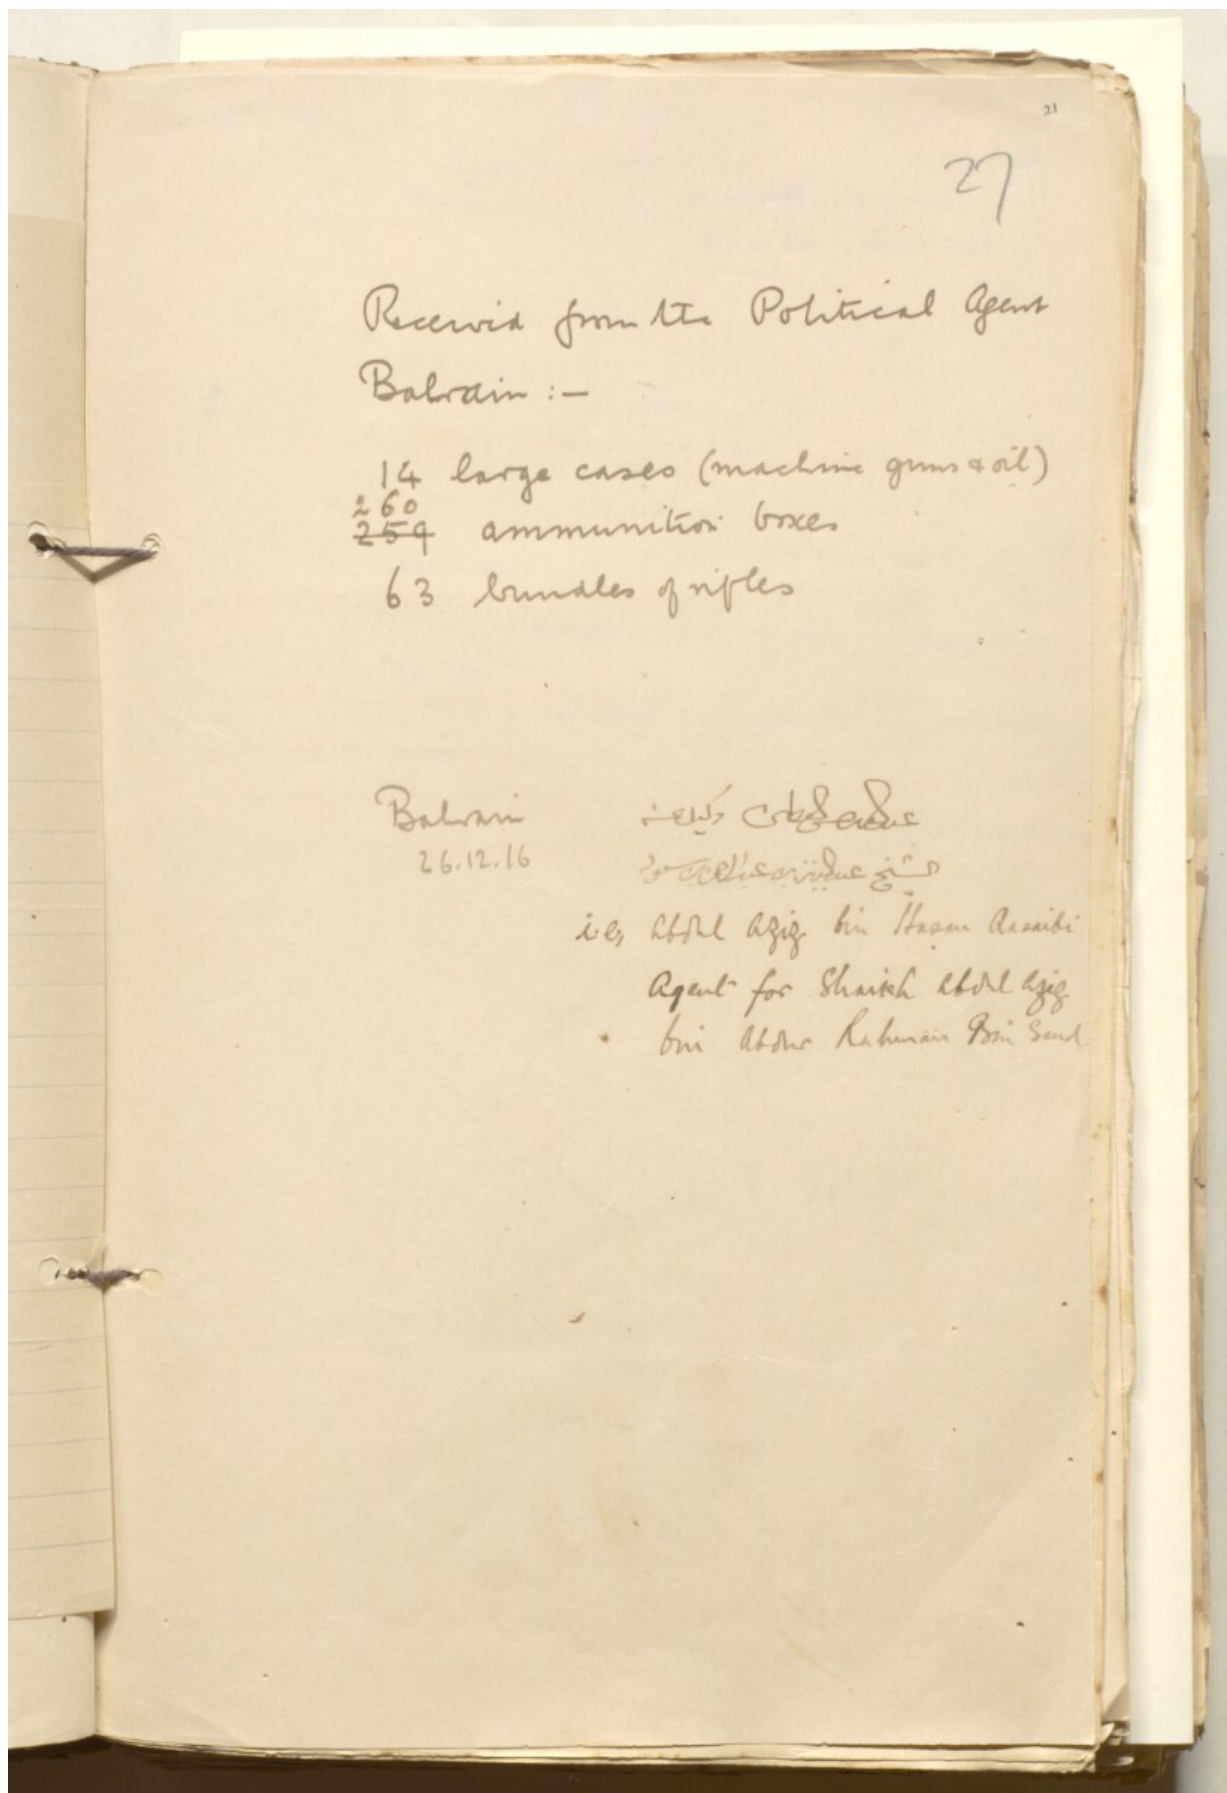 21
27
Received from the Political Agent
Bahrain :—
14 large cases (machine guns & oil)
260
259 ammunition boxes
63 bundles of rifles
Bahrain
26.12.16
الشيخ
i.e, Abdul Aziz bin Hasan
Agent for Shaikh Abdul Aziz
bin Abdur Rahman Bin Saud